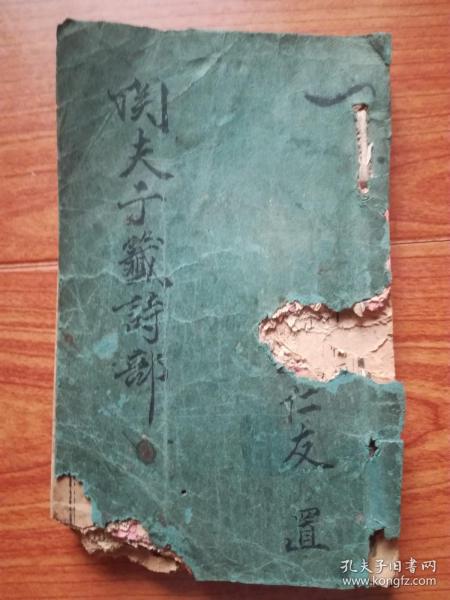 関夫子籤詩部
仁友置
孔夫子旧书网
www.kongfz.com